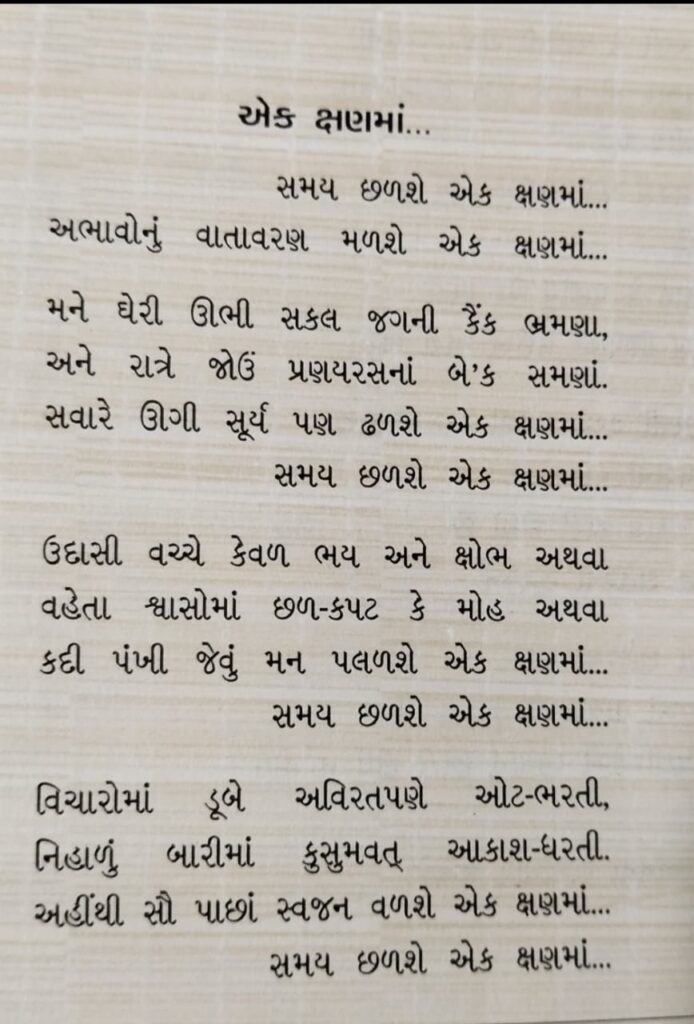 એક ક્ષણમાં...
સમય છળશે એક ક્ષણમાં...
અભાવોનું વાતાવરણ મળશે એક ક્ષણમાં...
મને ઘેરી ઊભી સકલ જગની કૈંક ભ્રમણા,
અને રાત્રે જોઉં પ્રણયરસનાં બે'ક સમણાં.
સવારે ઊગી સૂર્ય પણ ઢળશે એક ક્ષણમાં...
સમય છળશે એક ક્ષણમાં...
ઉદાસી વચ્ચે કેવળ ભય અને ક્ષોભ અથવા
વહેતા શ્વાસોમાં છળ-કપટ કે મોહ અથવા
કદી પંખી જેવું મન પલળશે એક ક્ષણમાં...
સમય છળશે એક ક્ષણમાં...
વિચારોમાં ડૂબે અવિરતપણે ઓટ-ભરતી,
નિહાળું બારીમાં કુસુમવત્ આકાશ-ધરતી.
અહીંથી સૌ પાછાં સ્વજન વળશે એક ક્ષણમાં...
સમય છળશે એક ક્ષણમાં...